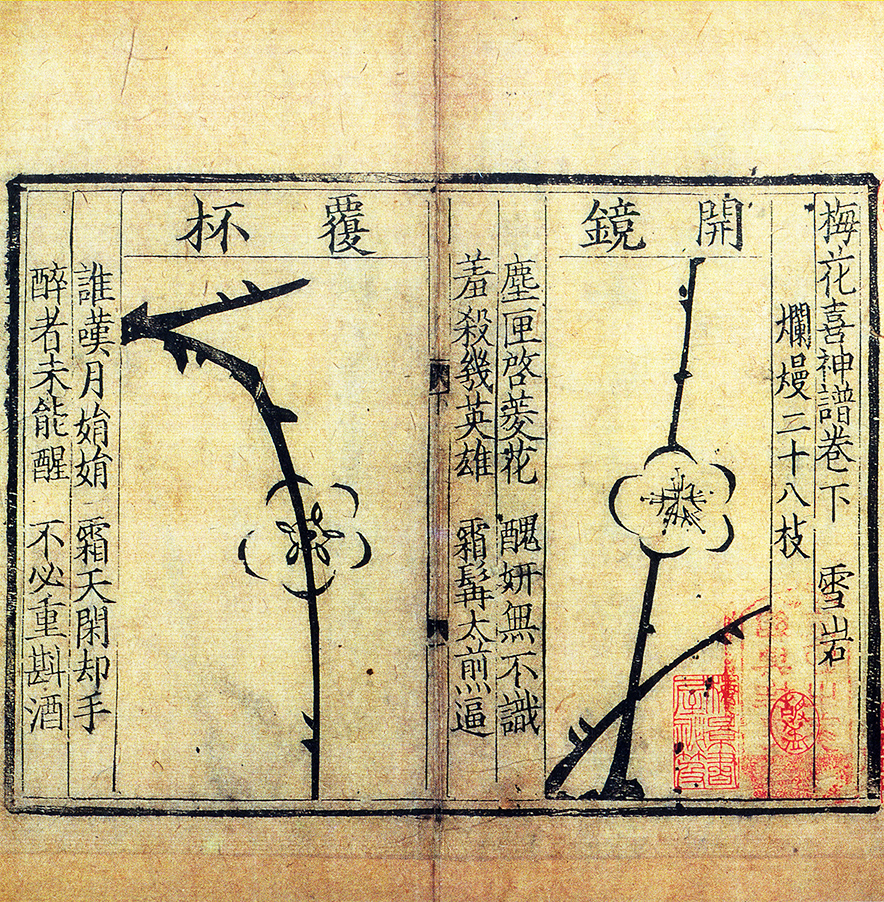 梅花喜神譜卷下　雪岩
爛熳二十八枝
開鏡
塵匣啓菱花　醜妍無不識
羞殺幾英雄　霜髯太煎逼
覆杯
誰嘆月娟娟　霜天閑却手
醉者未能醒　不必重斟酒